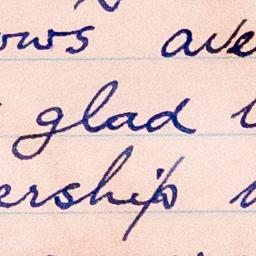 ows ave
glad
ership